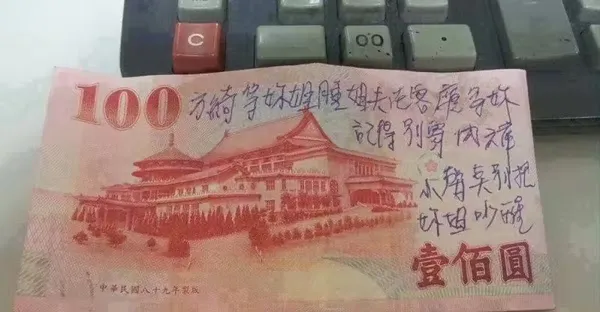 C
00
100
方綺等妳姐睡姐夫在客廳等妳
記得別穿內褲
小聲奌別把
妳姐吵醒
壹佰圓
中華民國八十九年製版